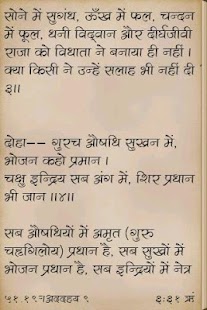 सोने में सुगंध, ऊँख में फूल, चन्दन
में फूल, धनी विद्वान और दीर्घजीवी
राजा को विधाता ने बनाया ही नहीं ।
क्या किसी ने उन्हें सलाह भी नहीं दी
३॥
दोहा-- गुरच औषधि सुखन में,
भोजन कहो प्रमान ।
चक्षु इन्द्रिय सब अंग में, शिर प्रधान
भी जान ॥४॥
सब औषधियों में अमृत (गुरु
चहृगिलोय) प्रधान है, सब सुखों में
भोजन प्रधान है, सब इन्द्रियों में नेत्र